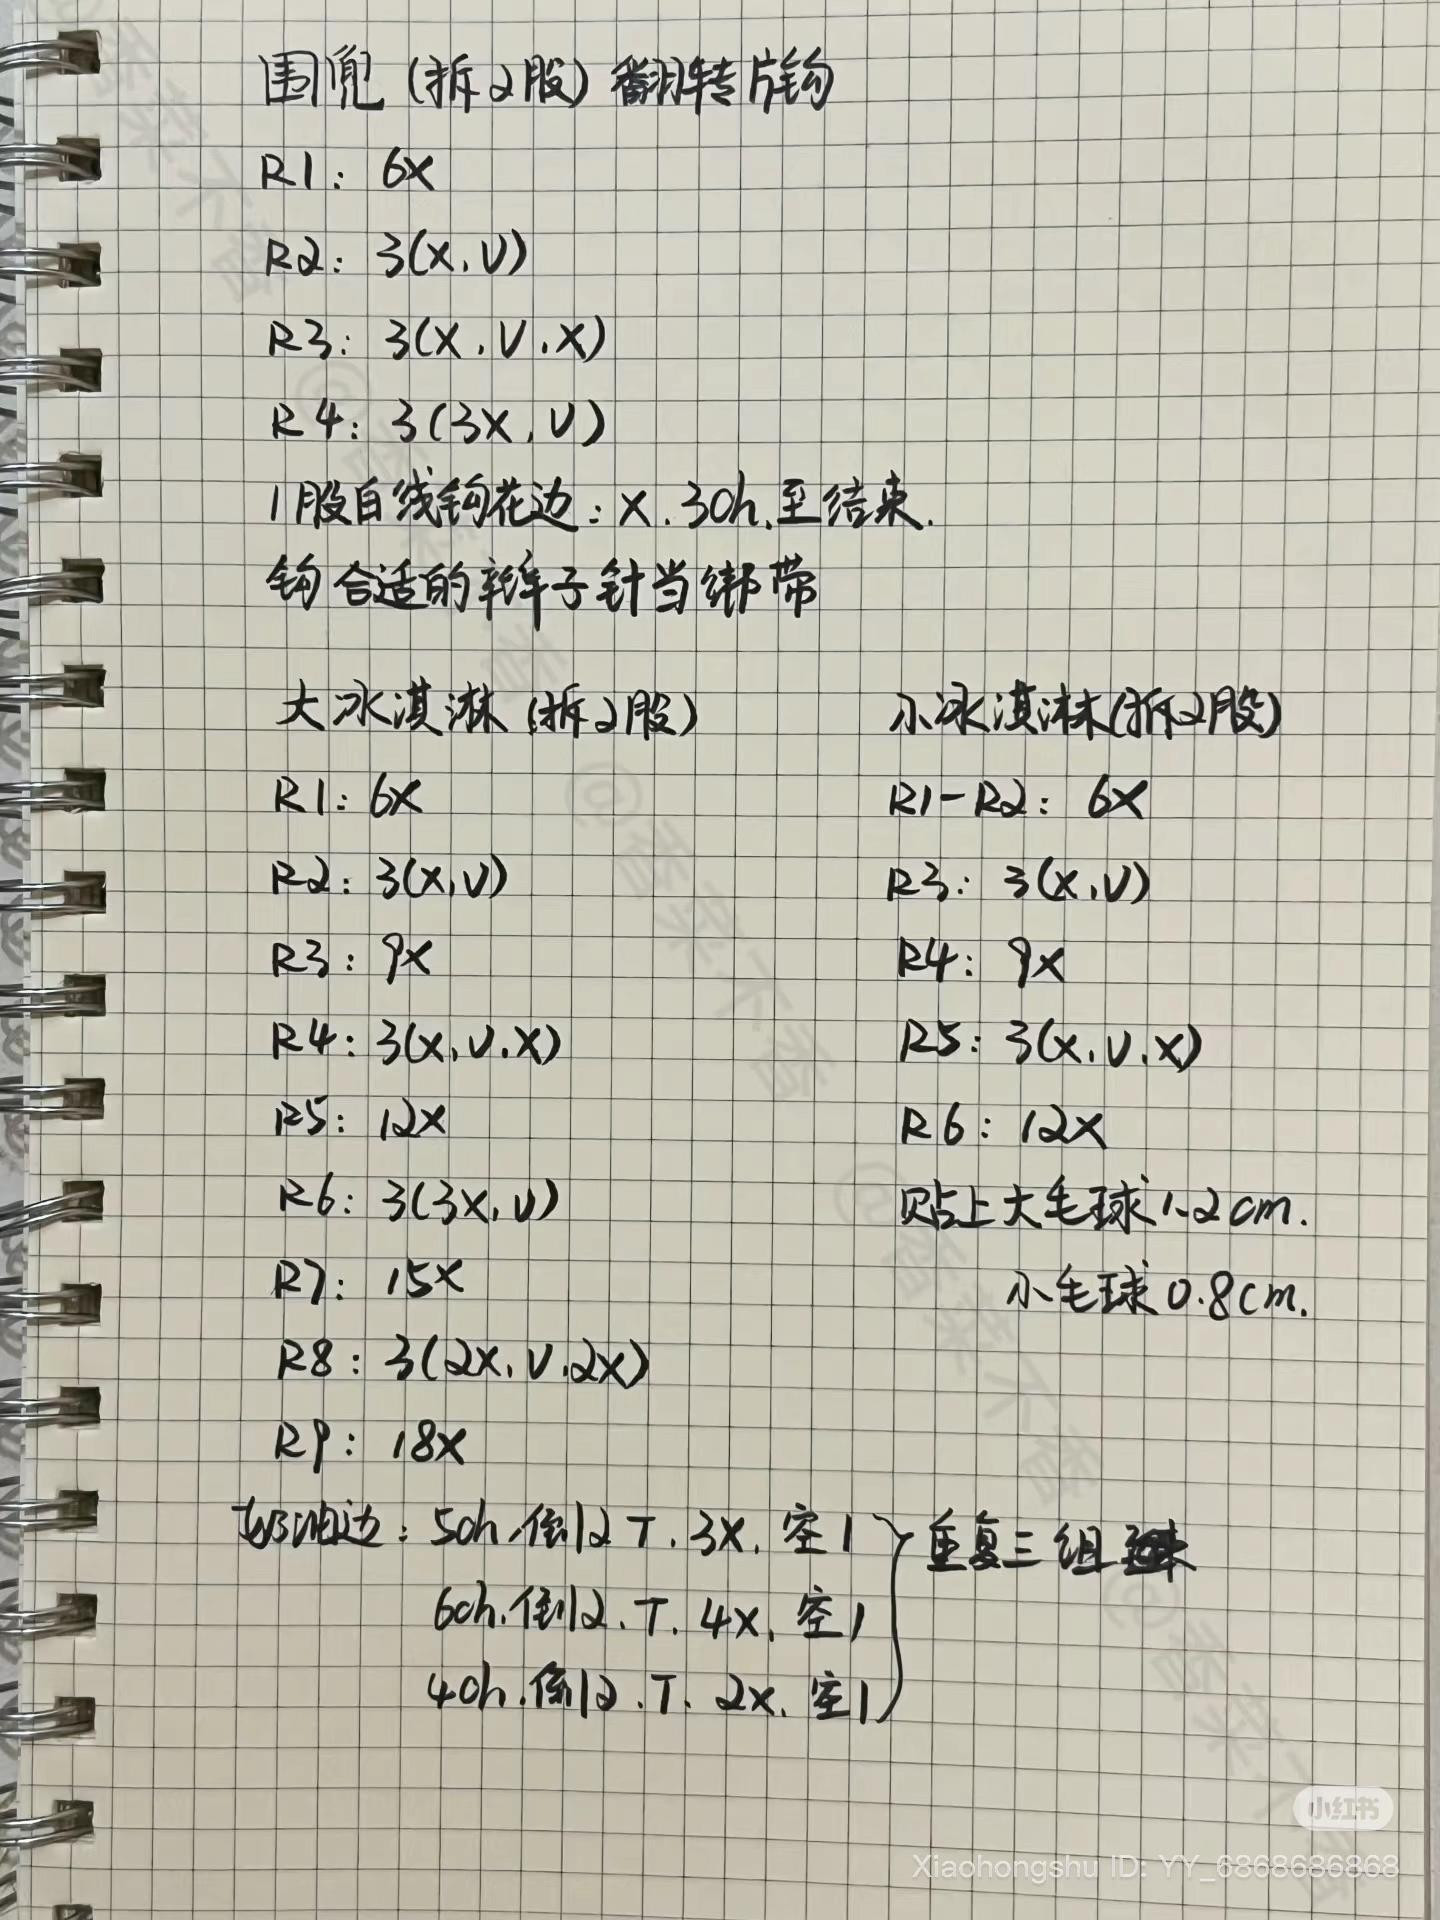 围兜（拆2股）翻转片钩
R1: 6X
R2: 3(X.V)
R3: 3(X.V.X)
R4: 3(3X.V)
1股白线钩花边：X.3ch.至结束.
钩合适的辫子针当绑带
大冰淇淋（拆2股）
R1: 6X
R2: 3(X.V)
R3: 9X
R4: 3(X.V.X)
R5: 12X
R6: 3(3X.V)
R7: 15X
R8: 3(2X.V.2X)
R9: 18X
奶油边：5ch.倒2T.3X.空1
6ch.倒2.T.4X.空1
4ch.倒2.T.2X.空1
重复三组
小冰淇淋（拆2股）
R1-R2: 6X
R3: 3(X.V)
R4: 9X
R5: 3(X.V.X)
R6: 12X
贴上大毛球1.2cm.
小毛球0.8cm.
@香菜不香
@香菜不香
@香菜不香
@香菜不香
小红书
Xiaohongshu ID: YY_6868686868